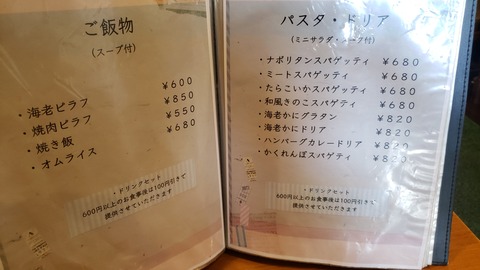 ご飯物
(スープ付)
・海老ピラフ ¥600
・焼肉ピラフ ¥850
・焼き飯 ¥550
・オムライス ¥680
・ドリンクセット
600円以上のお食事後は100円引きで
提供させていただきます
パスタ・ドリア
(ミニサラダ・スープ付)
・ナポリタンスパゲッティ ¥680
・ミートスパゲッティ ¥680
・たらこいかスパゲティ ¥680
・和風きのこスパゲティ ¥680
・海老かにグラタン ¥820
・海老かにドリア ¥820
・ハンバーグカレードリア ¥820
・かくれんぼスパゲティ ¥820
・ドリンクセット
600円以上のお食事後は100円引きで
提供させていただきます